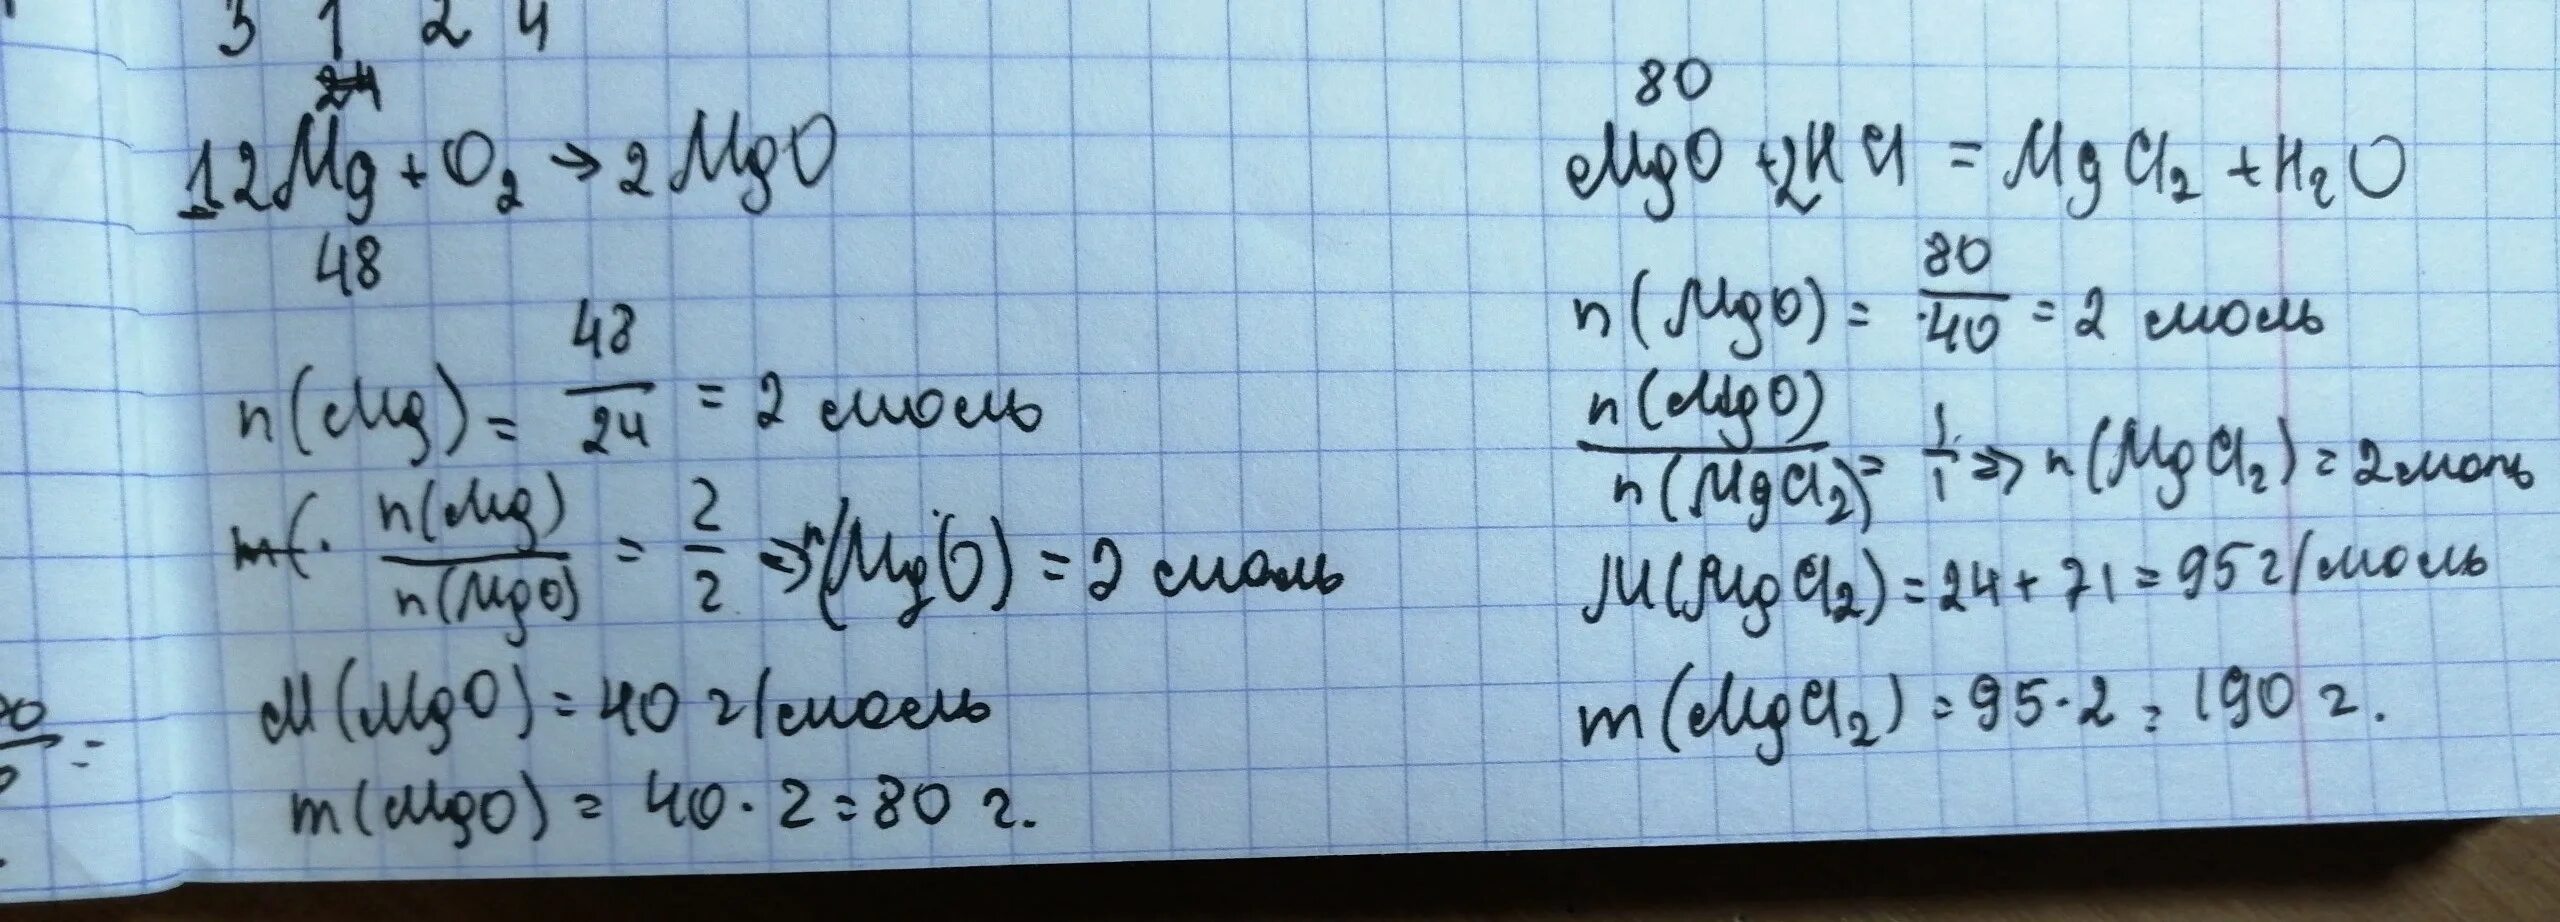 3 1 2 4
24
12Mg + O2 → 2MgO
48
n(Mg) = 48/24 = 2 моль
m( n(Mg)/n(MgO) = 2/2 => n(MgO) = 2 моль
M(MgO) = 40 г/моль
m(MgO) = 40 · 2 = 80 г.
80
MgO + 2HCl = MgCl2 + H2O
n(MgO) = 80/40 = 2 моль
n(MgO)/n(MgCl2) = 1/1 => n(MgCl2) = 2 моль
M(MgCl2) = 24 + 71 = 95 г/моль
m(MgCl2) = 95 · 2 = 190 г.